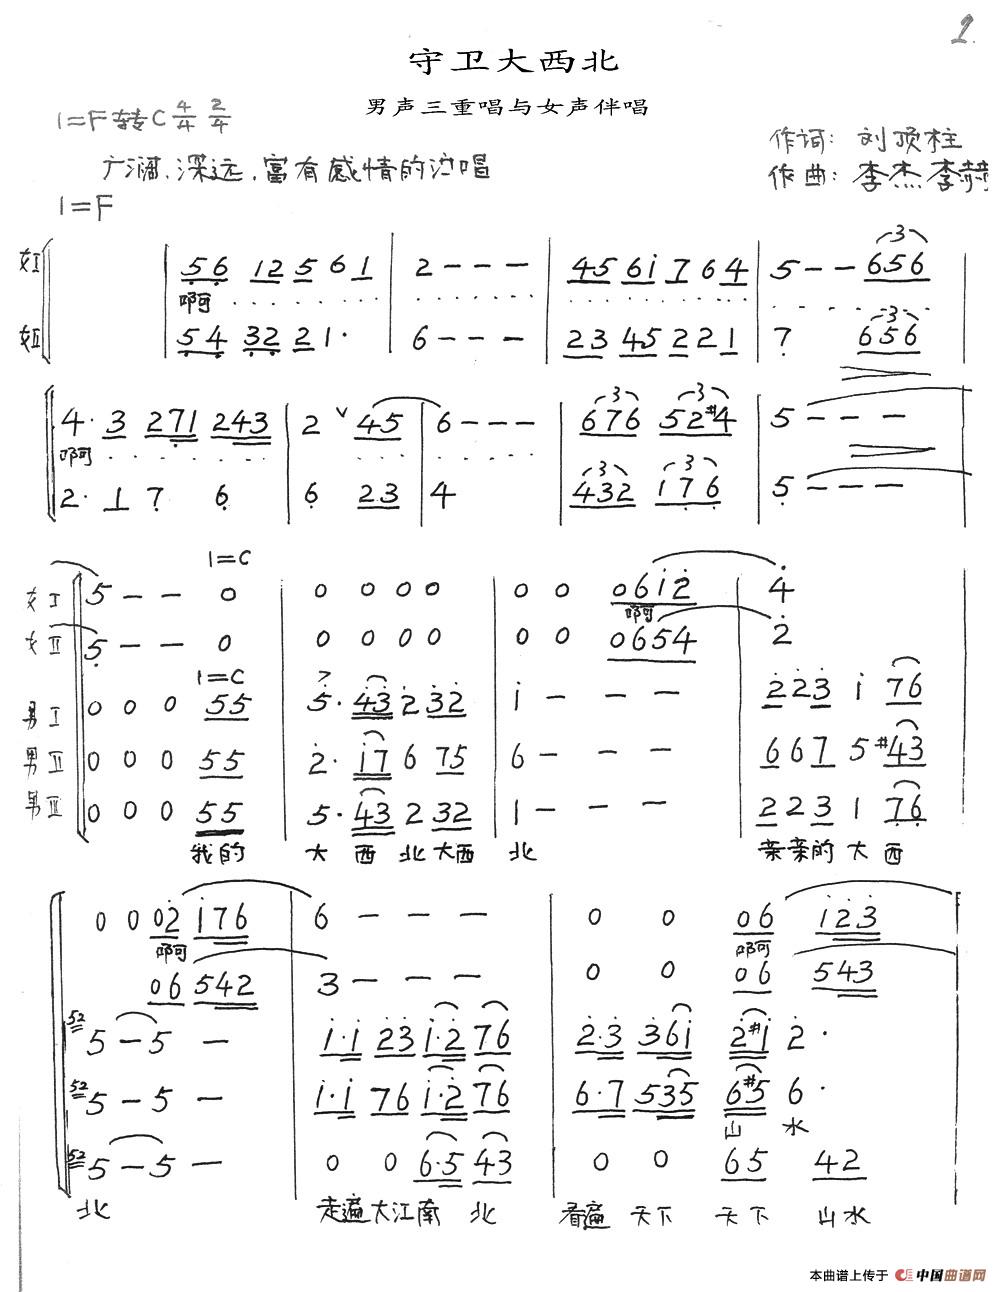 2.
守卫大西北
男声三重唱与女声伴唱
1=F转C 4/4 2/4
作词: 刘顶柱
广阔、深远、富有感情的演唱
作曲: 李杰 李赫
1=F
女I 56 12 5 6 1 | 2 - - - | 45 61 7 6 4 | 5 - - 656
啊
女II 54 32 21· | 6 - - - | 23 45 2 2 1 | 7 656
4· 3 271 243 | 2 ∨ 45 | 6 - - - | 676 52#4 | 5 - - -
啊
2· 1 7 6 | 6 23 | 4 | 432 176 | 5 - - -
1=C
女I 5 - - 0 | 0 0 0 0 | 0 0 0612 | 4
啊
女II 5 - - 0 | 0 0 0 0 | 0 0 0654 | 2
1=C
男I 0 0 0 55 | 5· 43 2 32 | 1 - - - | 2 2 3 1 76
男II 0 0 0 55 | 2· 17 6 75 | 6 - - - | 6 6 7 5 #43
男III 0 0 0 55 | 5· 43 2 32 | 1 - - - | 2 2 3 1 76
我的 大 西 北大西 北 亲亲的 大 西
0 0 02 176 | 6 - - - | 0 0 06 123
啊 啊
06 542 | 3 - - - | 0 0 06 543
52 5 - 5 - | 1·1 23 1·2 76 | 2·3 361 2#1 2·
52 5 - 5 - | 1·1 76 1·2 76 | 6·7 535 6#5 6·
山 水
52 5 - 5 - | 0 0 6·5 43 | 0 0 65 42
北 走遍大江南 北 看遍 天下 天下 山水
本曲谱上传于 中国曲谱网